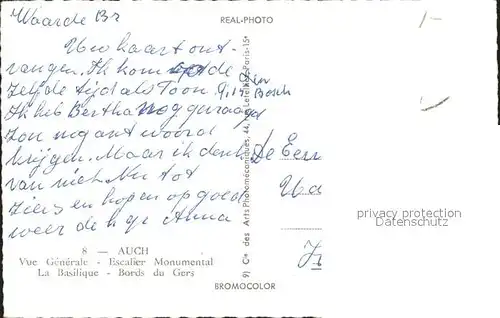 Waarde Br
REAL-PHOTO
Uw kaart ont-
vangen. Ik kom op de
zelfde tijd als Toon
9.14 Den Bosch
Ik heb Bertha nog gevraagd
zou nog antwoord
krijgen. Maar ik denk
van niet. Nu tot
ziens en hopen op goed
weer de Anna
De Eer
8 - AUCH
Vue Générale - Escalier Monumental
La Basilique - Bords du Gers
9) Cie des Arts Photomécaniques, 44, Letellier - Paris-15e
BROMOCOLOR
privacy protection
Datenschutz